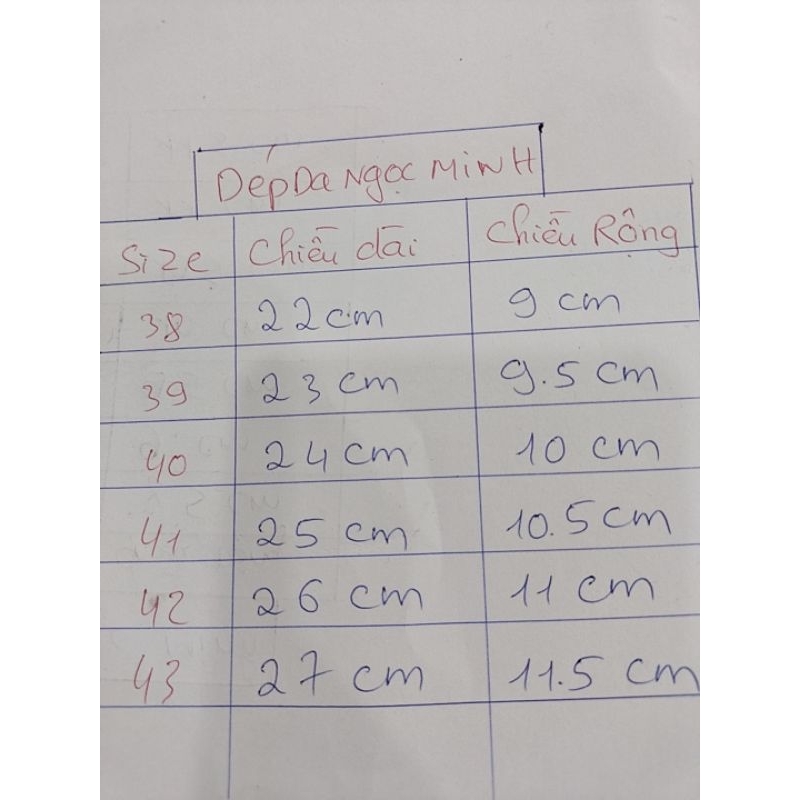 DépDa Ngọc MiNH
Size Chiều dài Chiều Rộng
38 22 cm 9 cm
39 23 cm 9.5 cm
40 24 cm 10 cm
41 25 cm 10.5 cm
42 26 cm 11 cm
43 27 cm 11.5 cm